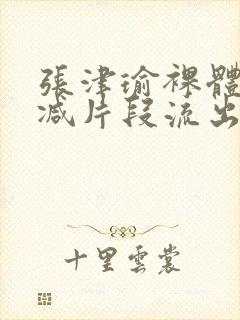 張津瑜裸體
减片段流出
十里雲裳